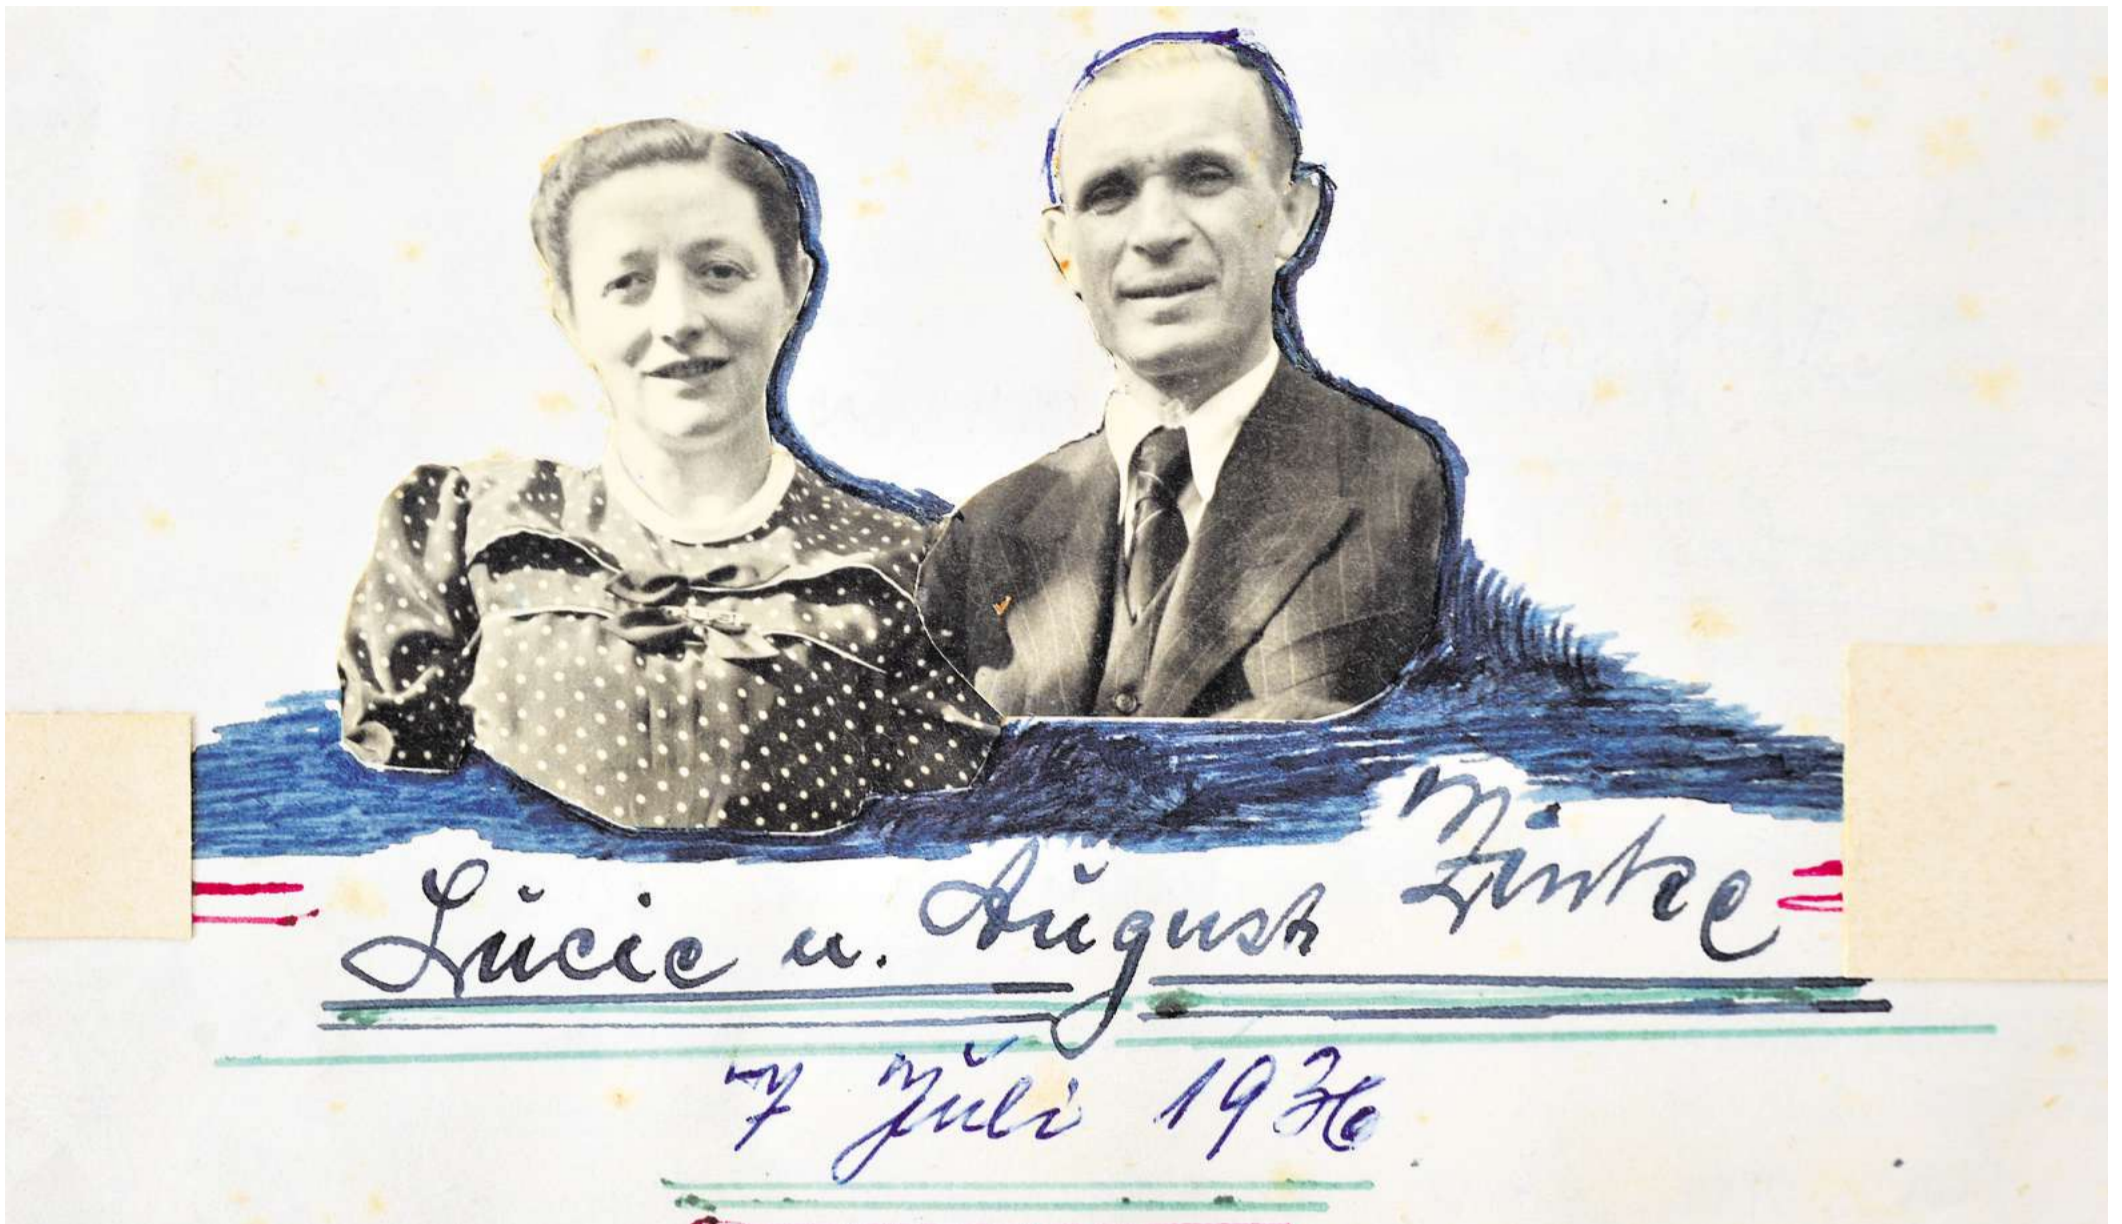 Lucie u. August Zinke
7 Juli 1936